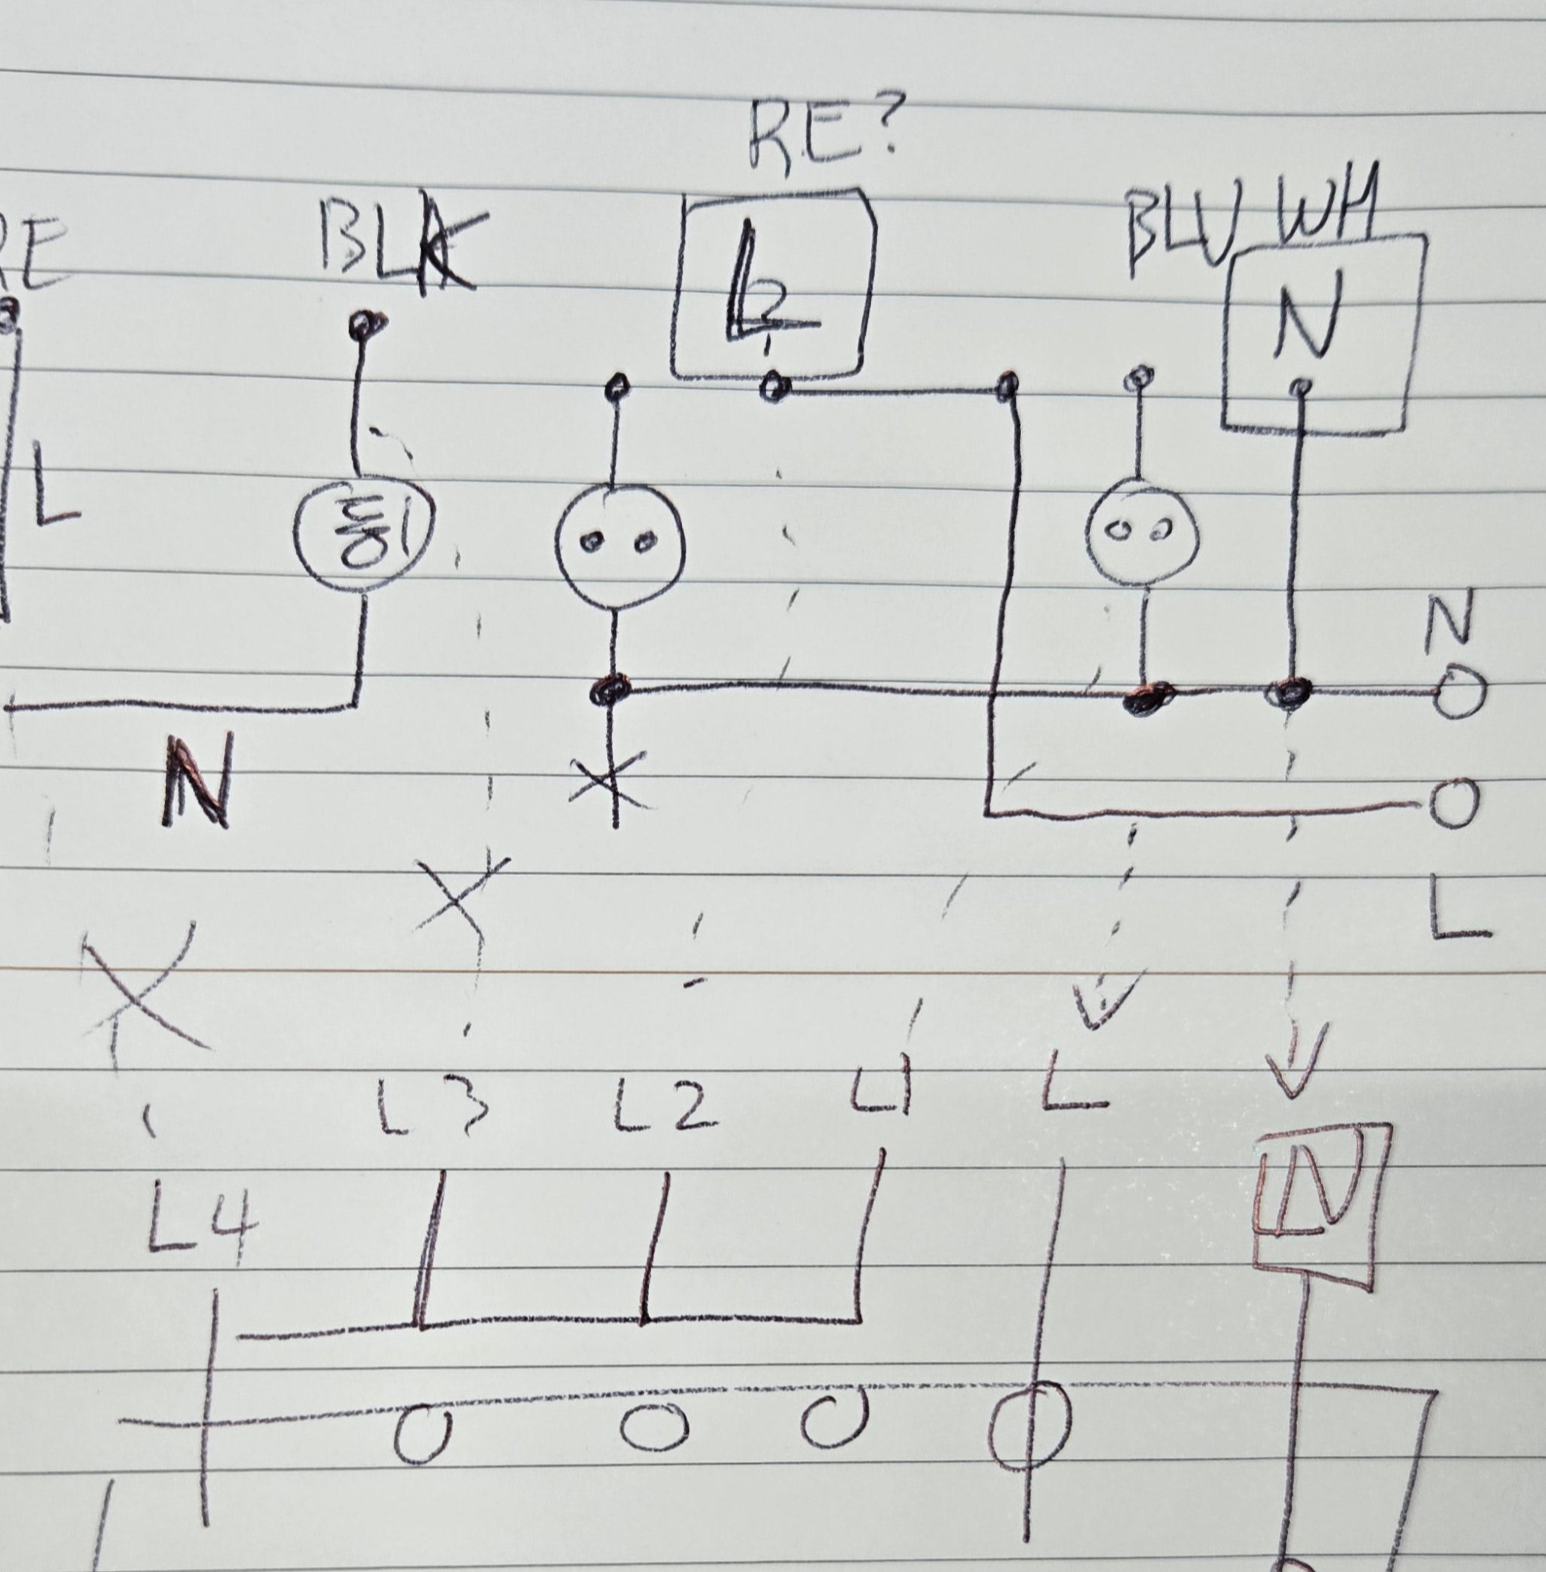 RE?
RE
BLK
BLU WH
L
N
L
N
N
L
L3
L2
L1
L
L4
N